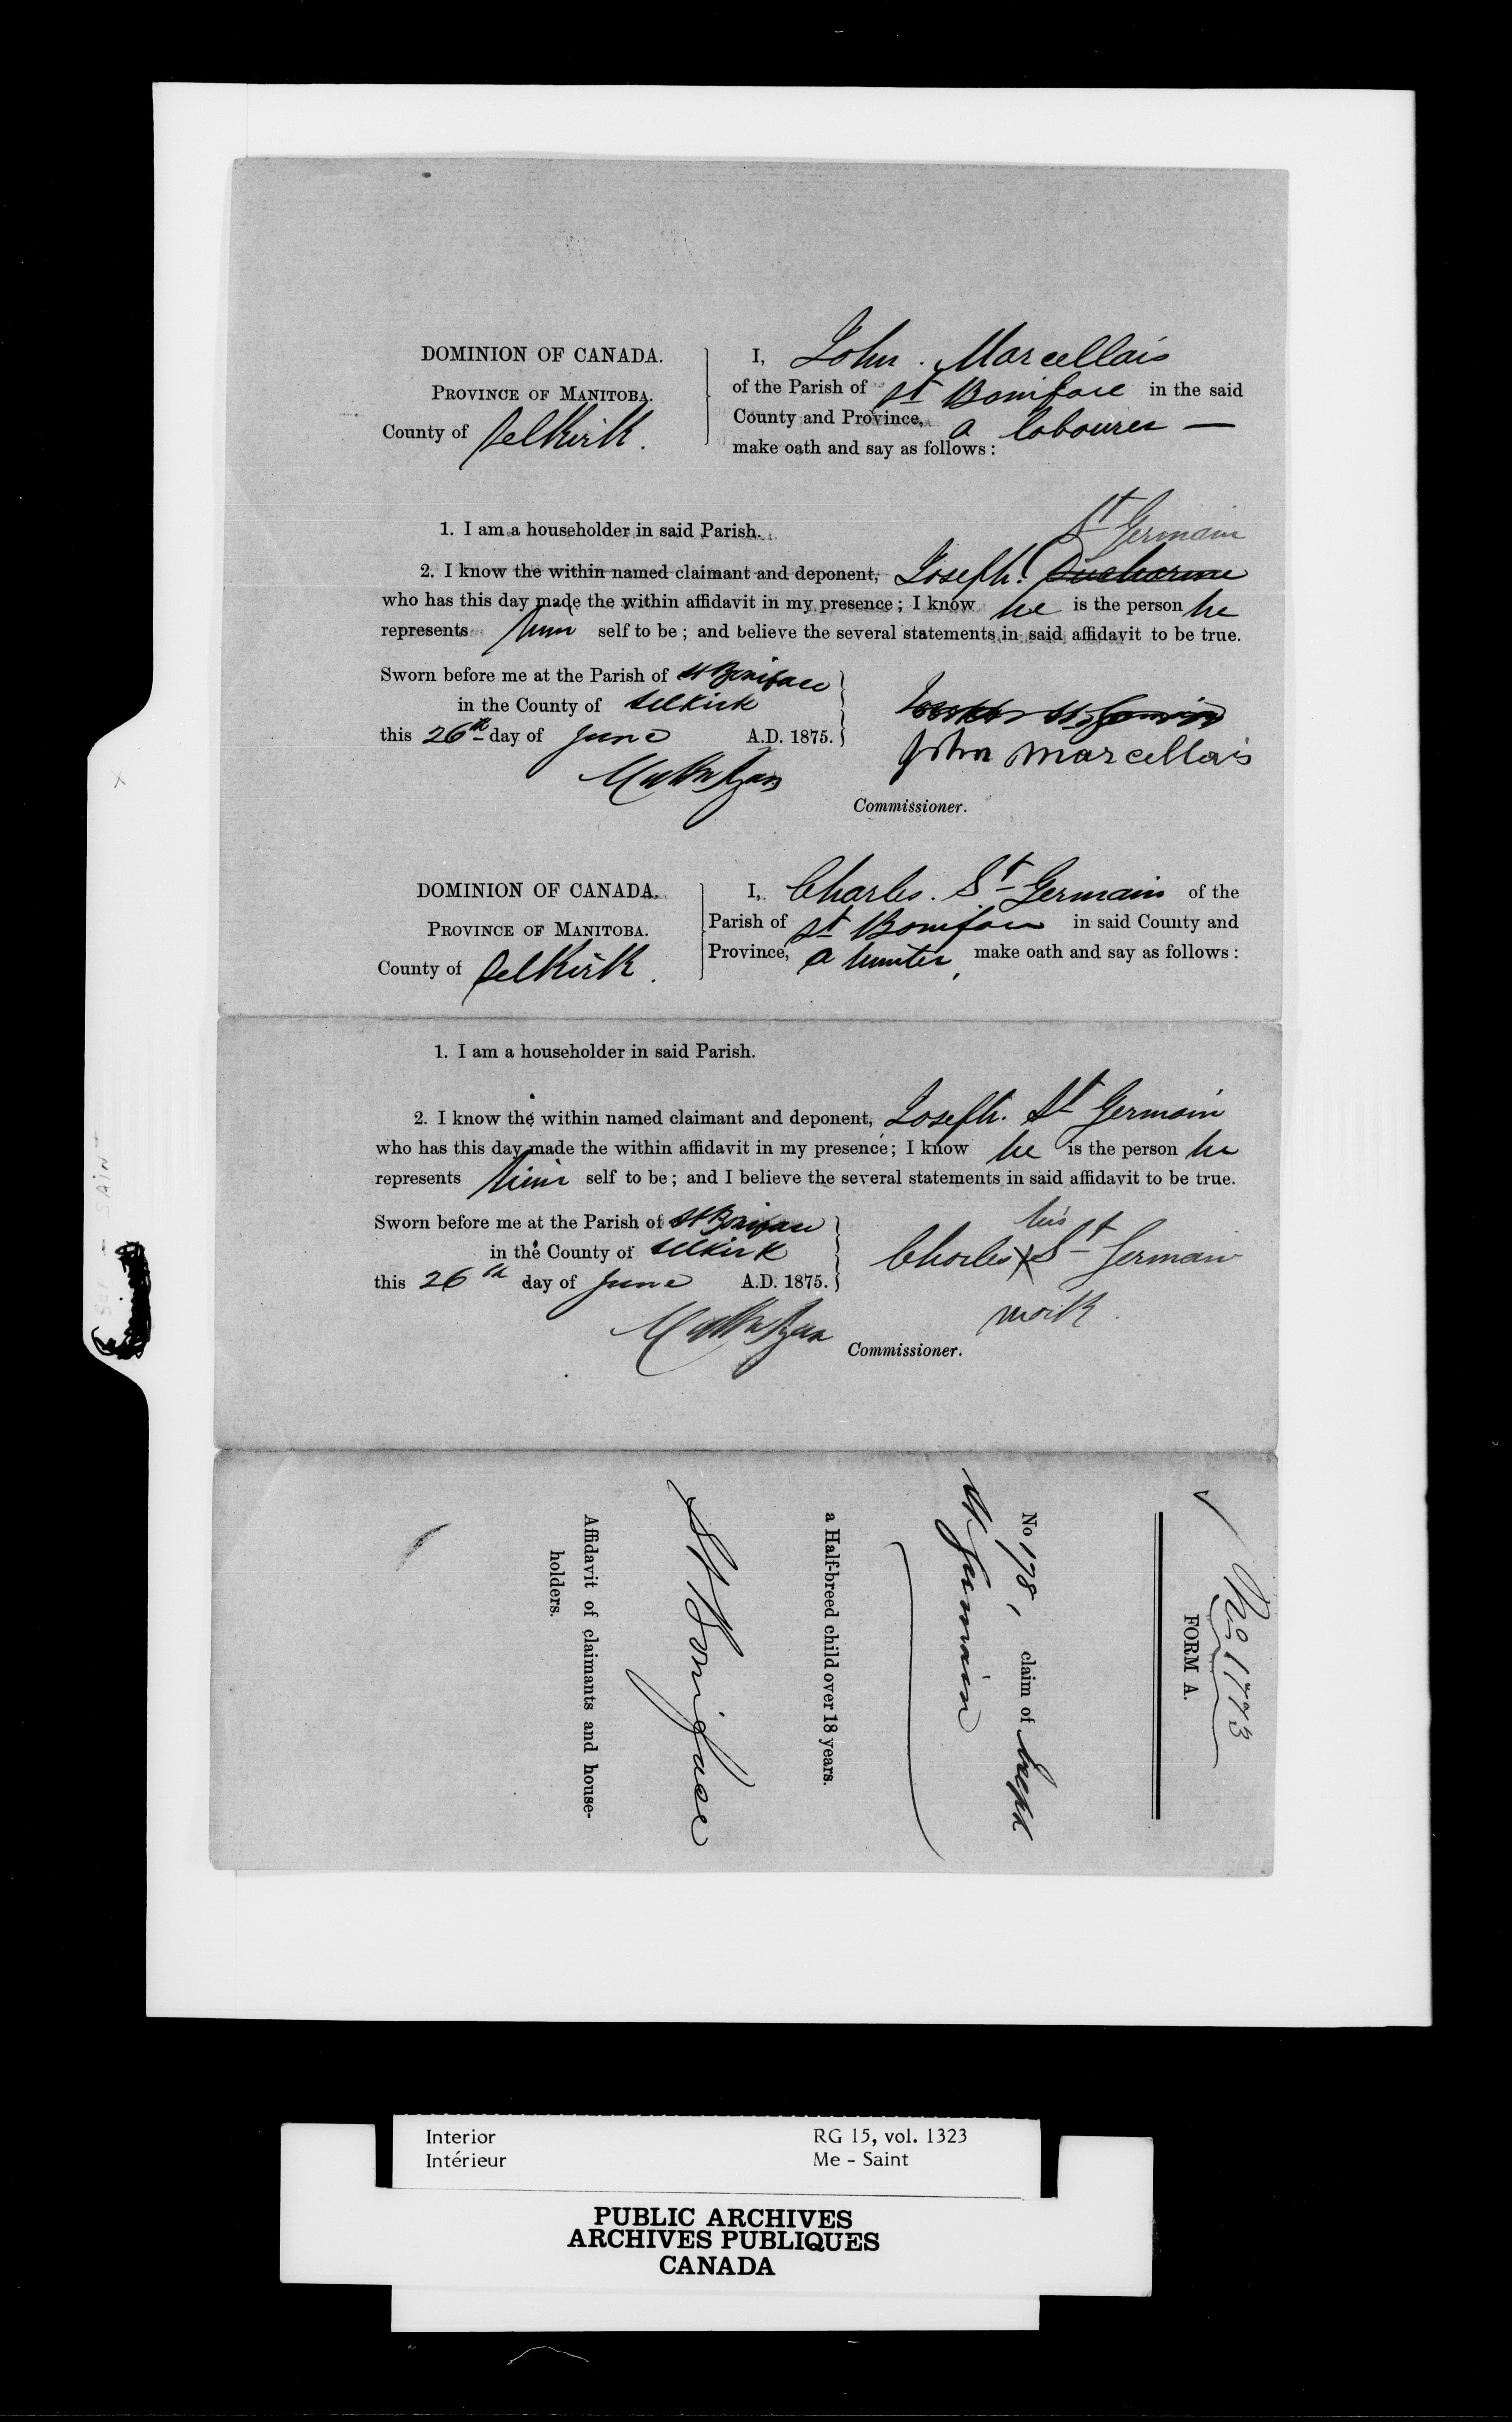 DOMINION OF CANADA.
PROVINCE OF MANITOBA.
County of Selkirk.
I, John Marcellais
of the Parish of St Boniface in the said
County and Province, a labourer —
make oath and say as follows:
1. I am a householder in said Parish.
St Germain
2. I know the within named claimant and deponent, Joseph Ducharme
who has this day made the within affidavit in my presence; I know he is the person he
represents him self to be; and believe the several statements in said affidavit to be true.
Sworn before me at the Parish of St Boniface
in the County of Selkirk
this 26th day of June A.D. 1875.
John Marcellais
Commissioner.
DOMINION OF CANADA.
PROVINCE OF MANITOBA.
County of Selkirk.
I, Charles St Germain of the
Parish of St Boniface in said County and
Province, a hunter, make oath and say as follows:
1. I am a householder in said Parish.
2. I know the within named claimant and deponent, Joseph St Germain
who has this day made the within affidavit in my presence; I know he is the person he
represents him self to be; and I believe the several statements in said affidavit to be true.
Sworn before me at the Parish of St Boniface
in the County of Selkirk
this 26th day of June A.D. 1875.
his
Charles X St Germain
mark.
Commissioner.
No 1773
FORM A.
No 178, claim of Joseph
St Germain
a Half-breed child over 18 years.
St Boniface
Affidavit of claimants and house-
holders.
Interior
Intérieur
RG 15, vol. 1323
Me - Saint
PUBLIC ARCHIVES
ARCHIVES PUBLIQUES
CANADA